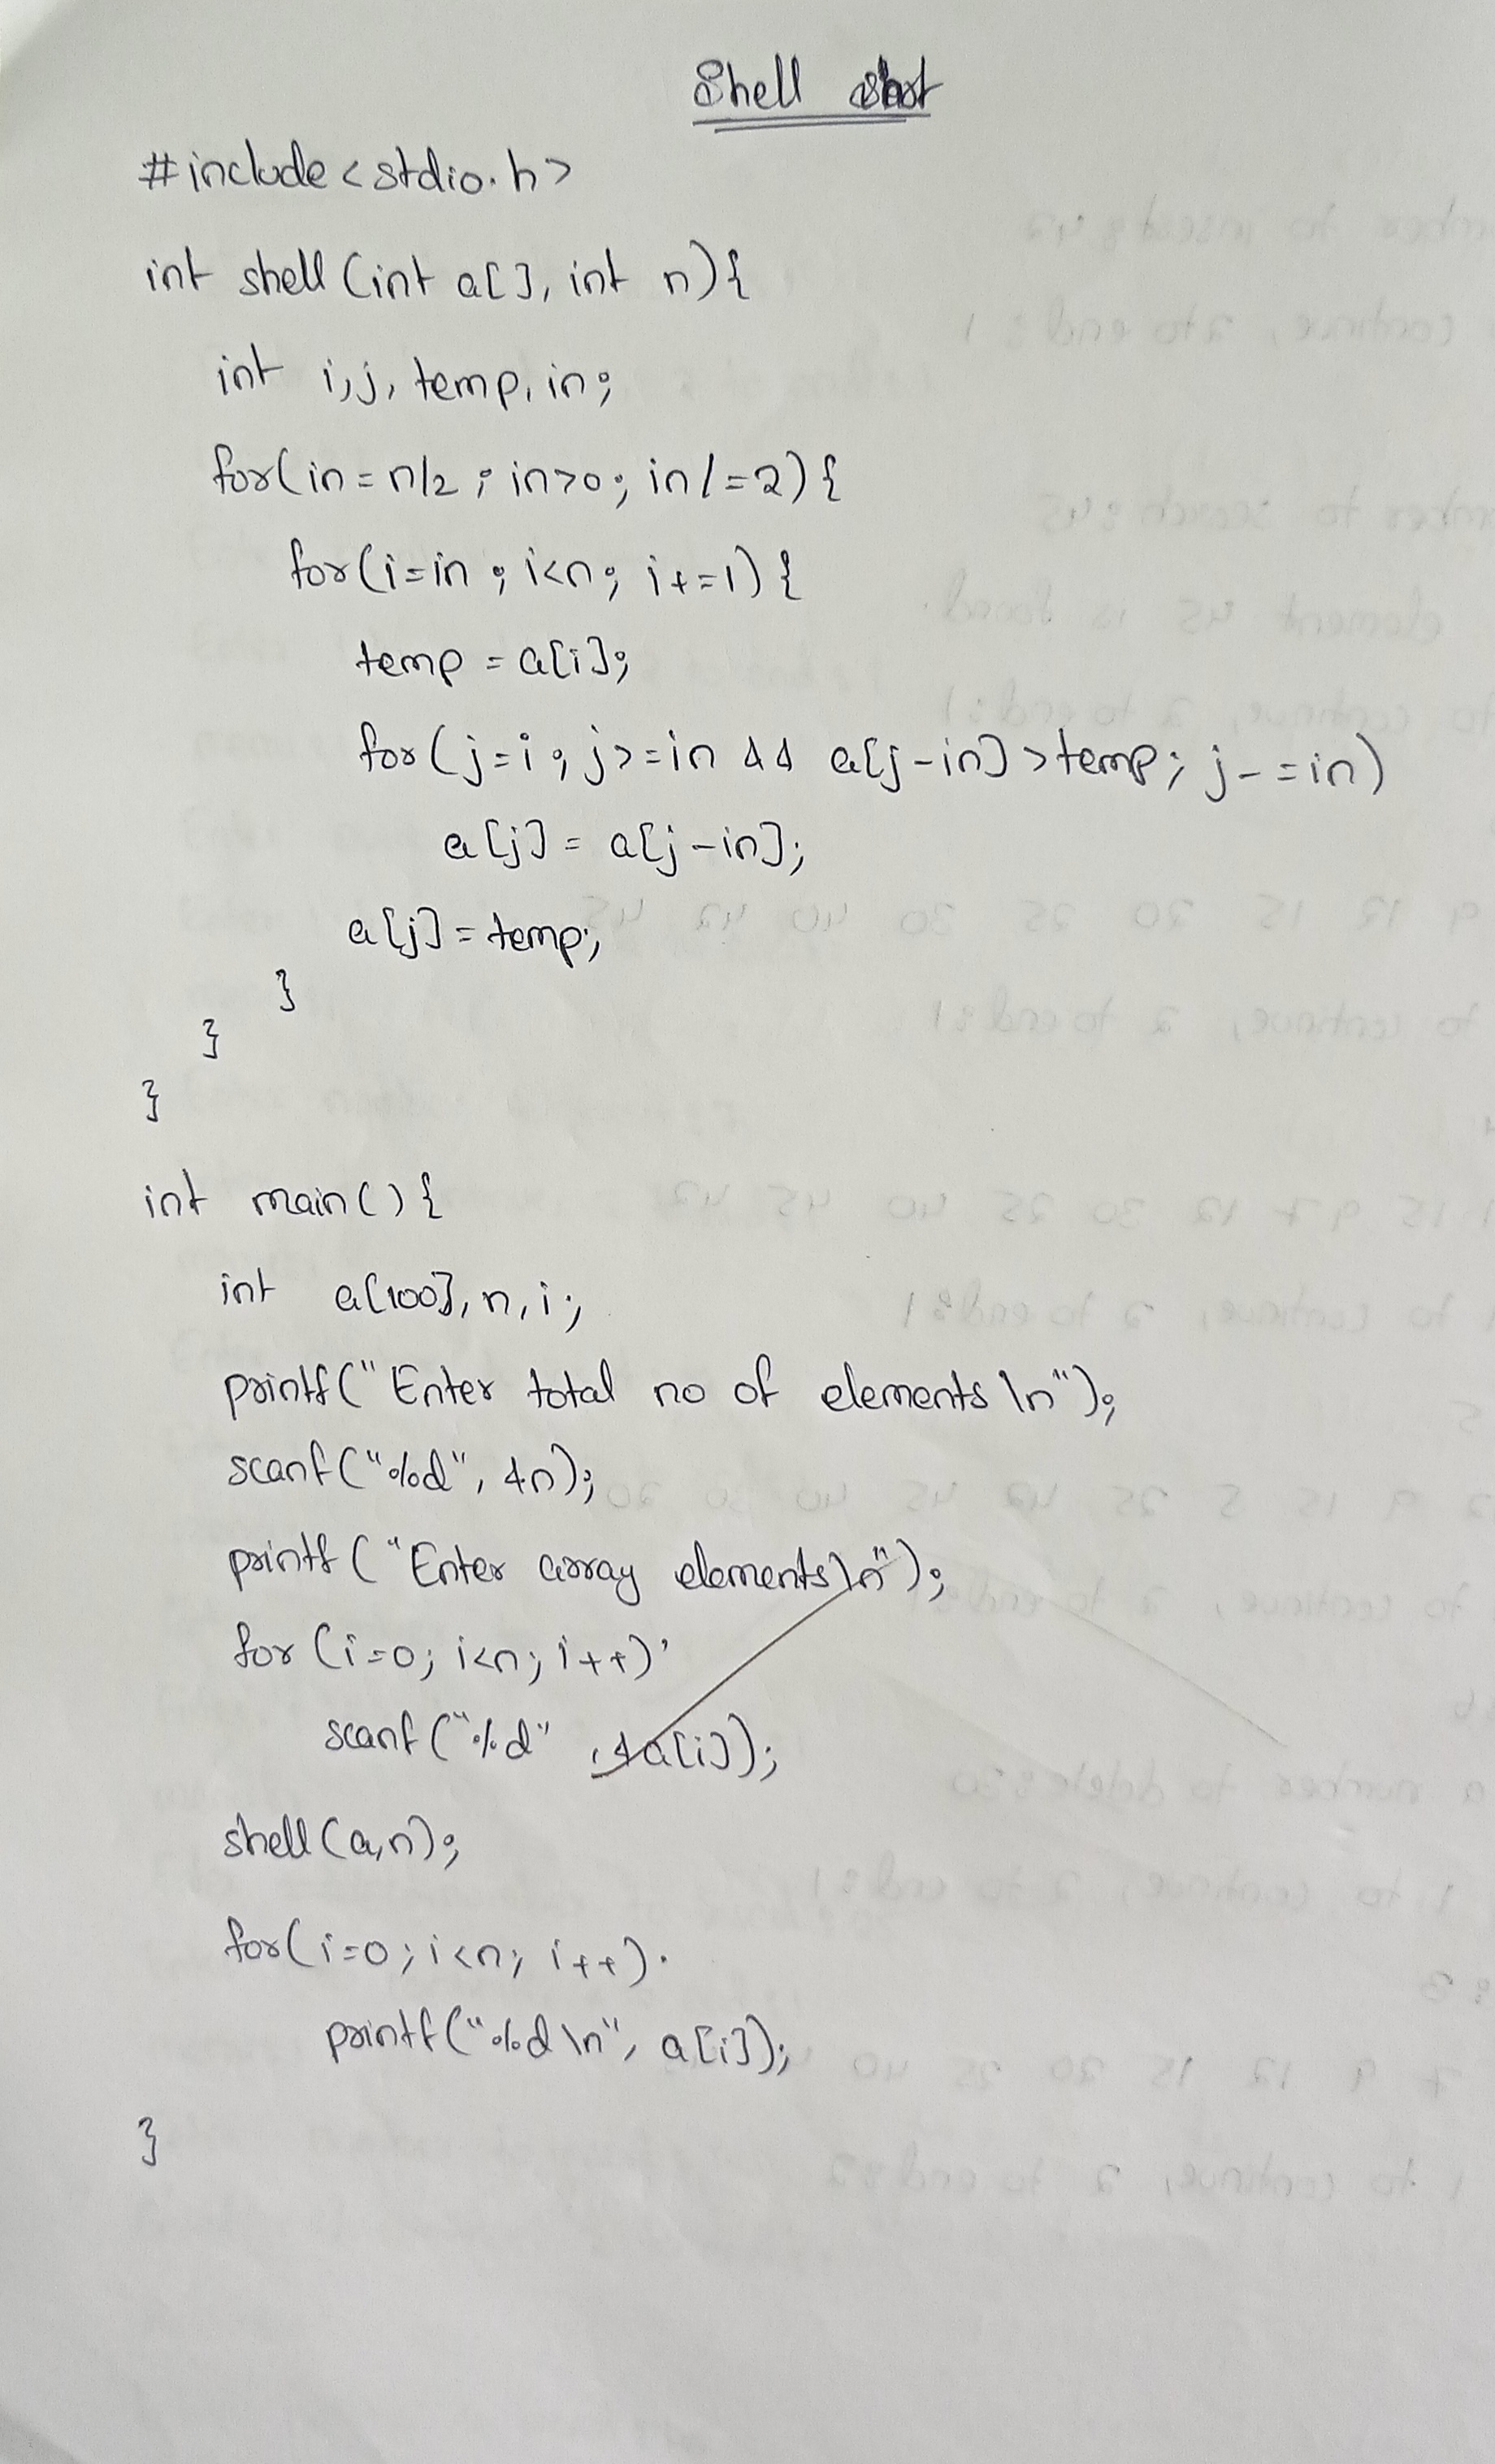 Shell short
#include<stdio.h>
int shell (int a[], int n){
int i,j, temp, in;
for(in=n/2; in>0; in/=2){
for(i=in; i<n; i+=1){
temp=a[i];
for(j=i; j>=in && a[j-in]>temp; j-=in)
a[j]=a[j-in];
a[j]=temp;
}
}
}
int main(){
int a[100], n, i;
printf("Enter total no of elements\n");
scanf("%d", &n);
printf("Enter array elements\n");
for (i=0; i<n; i++)
scanf("%d", &a[i]);
shell(a,n);
for(i=0; i<n; i++)
printf("%d\n", a[i]);
}